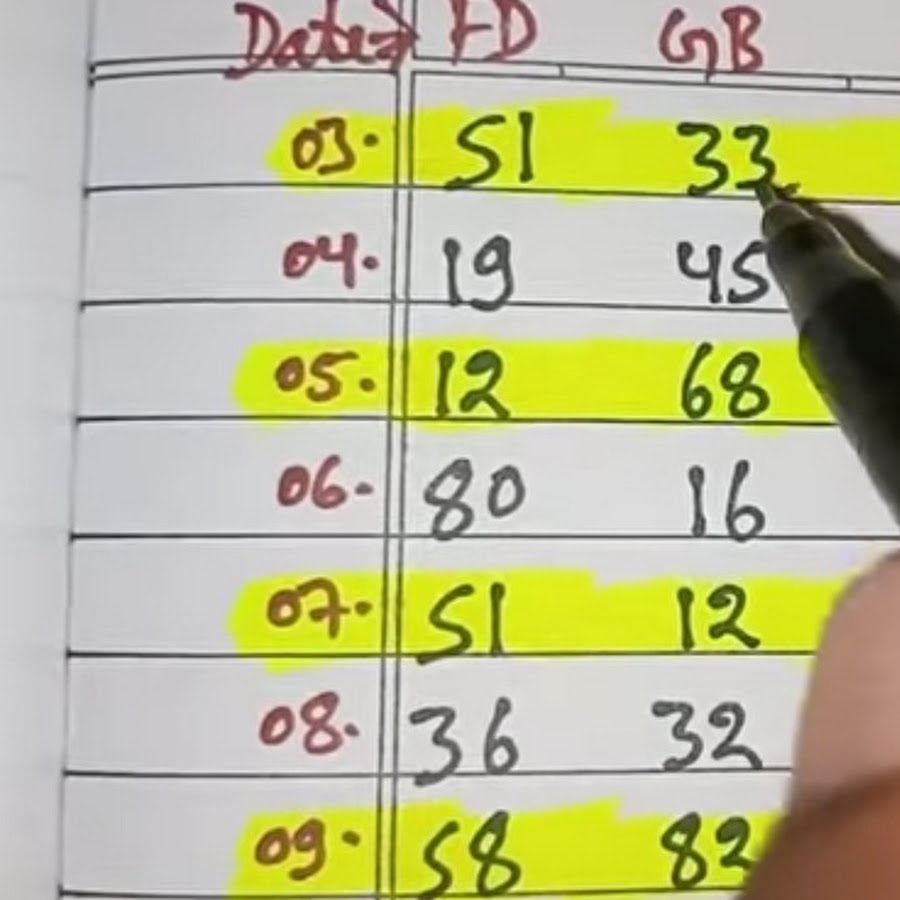 Date⇒ FD GB
03. 51 33
04. 19 45
05. 12 68
06. 80 16
07. 51 12
08. 36 32
09. 58 82